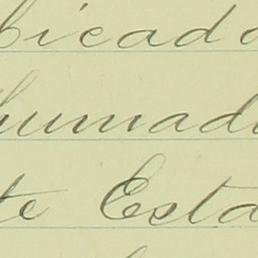 bicado
humad
te Esta